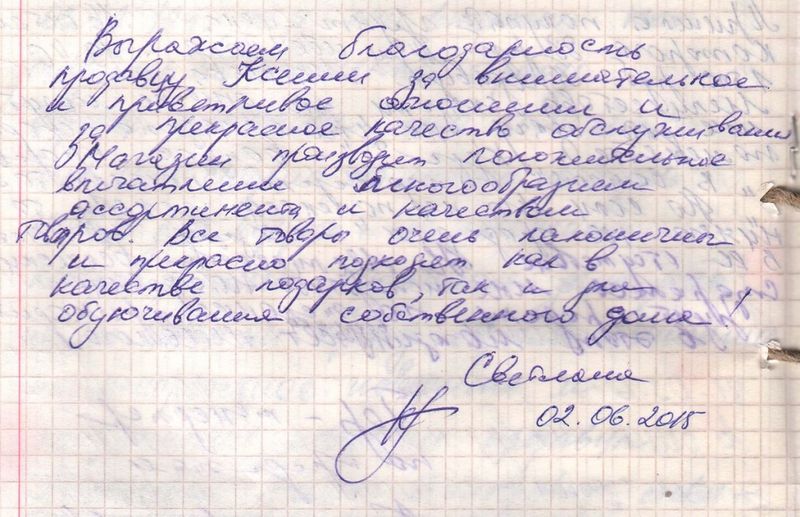 Выражаем благодарность
продавцу Ксении за внимательное
и приветливое отношении и
за прекрасное качество обслуживания
Магазин производит положительное
впечатлении многообразием
ассортимента и качеством
Товаров. Все товары очень лаконичны
и прекрасно подходят как в
качестве подарков, так и для
обуючивания собственного дома!
Светлана
02.06.2015